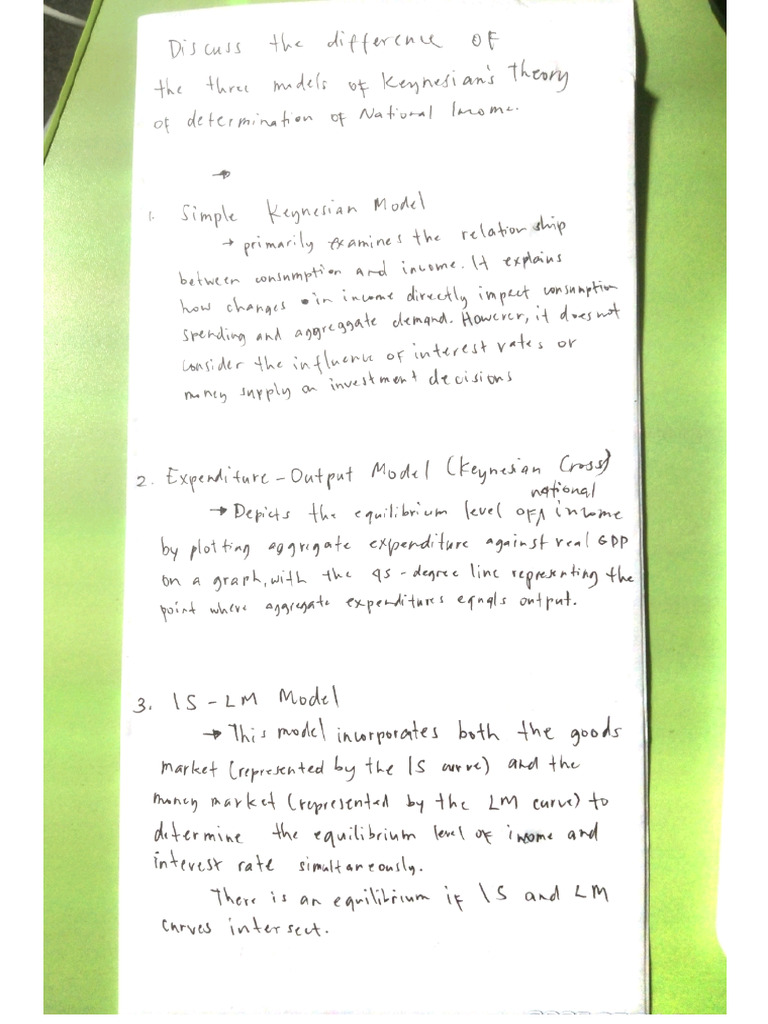 Discuss the difference of
the three models of Keynesian's theory
of determination of National Income.
→
1. Simple Keynesian Model
→ primarily examines the relationship
between consumption and income. It explains
how changes in income directly impact consumption
spending and aggreggate demand. However, it does not
consider the influence of interest rates or
money supply on investment decisions
2. Expenditure-Output Model (Keynesian Cross)
→ Depicts the equilibrium level of national income
by plotting aggregate expenditure against real GDP
on a graph, with the 45-degree line representing the
point where aggregate expenditures equals output.
3. IS-LM Model
→ This model incorporates both the goods
market (represented by the IS curve) and the
money market (represented by the LM curve) to
determine the equilibrium level of income and
interest rate simultaneously.
There is an equilibrium if IS and LM
curves intersect.